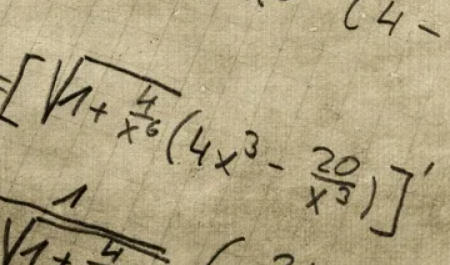 (4 -
= [ √(1 + 4/x⁶) (4x³ - 20/x³) ]'
1/√(1 + 4 (